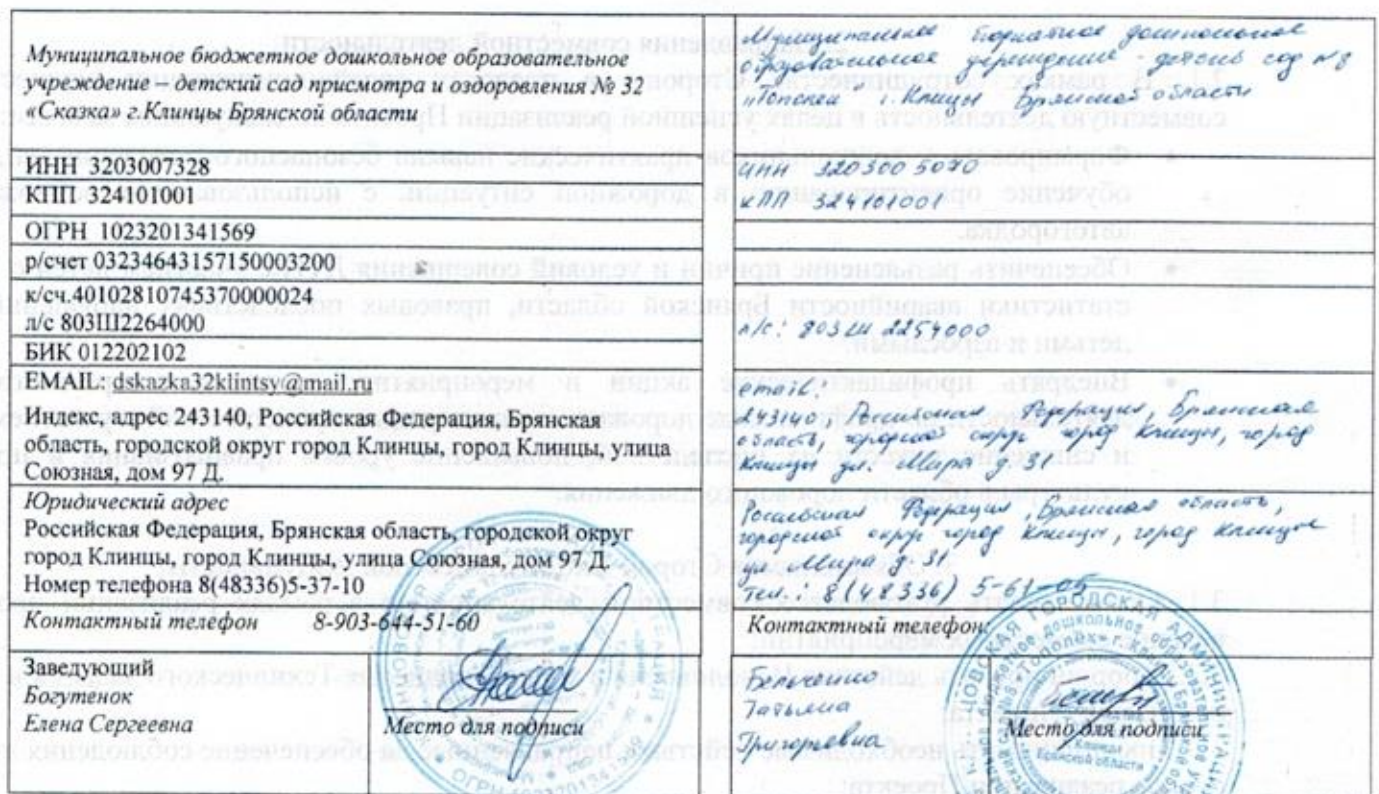 Муниципальное бюджетное дошкольное образовательное
учреждение – детский сад присмотра и оздоровления № 32
«Сказка» г.Клинцы Брянской области
ИНН 3203007328
КПП 324101001
ОГРН 1023201341569
р/счет 03234643157150003200
к/сч.40102810745370000024
л/с 803Ш2264000
БИК 012202102
EMAIL: dskazka32klintsy@mail.ru
Индекс, адрес 243140, Российская Федерация, Брянская
область, городской округ город Клинцы, город Клинцы, улица
Союзная, дом 97 Д.
Юридический адрес
Российская Федерация, Брянская область, городской округ
город Клинцы, город Клинцы, улица Союзная, дом 97 Д.
Номер телефона 8(48336)5-37-10
Контактный телефон 8-903-644-51-60
Заведующий
Богутенок
Елена Сергеевна
Место для подписи
Муниципальное бюджетное дошкольное
образовательное учреждение - детский сад №8
"Тополек" г. Клинцы Брянской области
ИНН 3203005070
КПП 324101001
л/с: 803Ш2254000
email:
243140, Российская Федерация, Брянская
область, городской округ город Клинцы, город
Клинцы ул. Мира д. 31
Российская Федерация, Брянская область,
городской округ город Клинцы, город Клинцы
ул. Мира д. 31
Тел.: 8(48336) 5-61-05
Контактный телефон:
Татьяна
Григорьевна
Место для подписи
ГОРОДСКАЯ АДМИНИСТРАЦИЯ